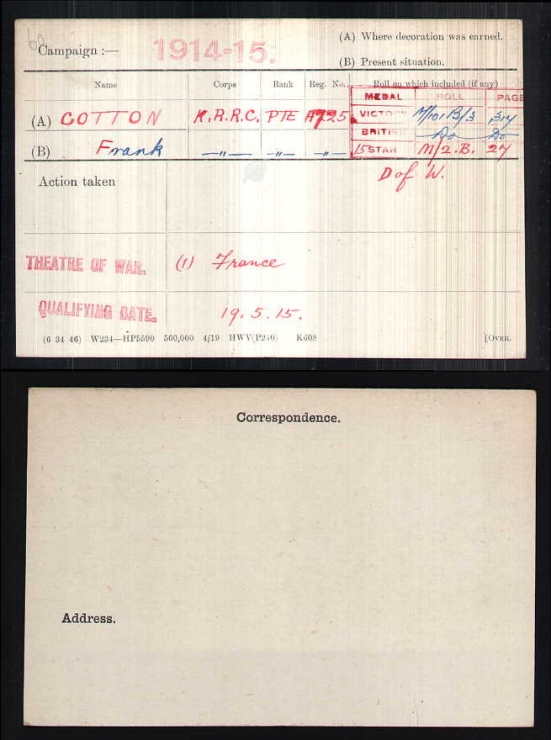 Campaign :—
1914-15.
(A) Where decoration was earned.
(B) Present situation.
Name Corps Rank Reg. No. Roll on which included (if any)
MEDAL ROLL PAGE
(A) COTTON K.R.R.C. PTE VICTORY
(B) Frank —"— —"— —"— BRITISH Do Do
15 STAR M/2.B. 27
Action taken
D of W.
THEATRE OF WAR. (1) France
QUALIFYING DATE. 19.5.15.
(6 34 46) W234—HP5590 500,000 4/19 HWV(P240) K608 [OVER.
Correspondence.
Address.